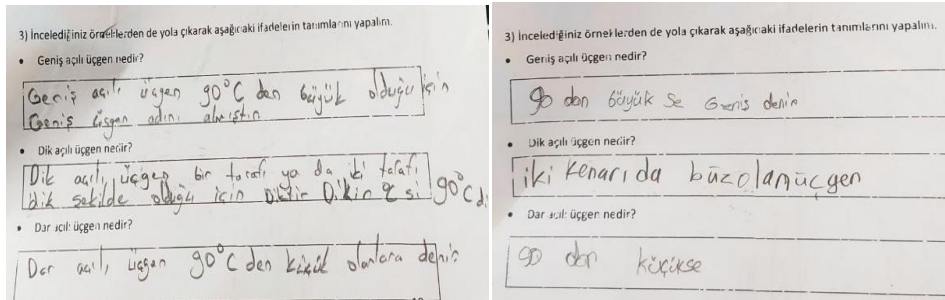 3) İncelediğiniz örneklerden de yola çıkarak aşağıdaki ifadelerin tanımlarını yapalım.
• Geniş açılı üçgen nedir?
Geniş açılı üçgen 90°C den büyük olduğu için
Geniş üçgen adını almıştır
• Dik açılı üçgen nedir?
Dik açılı üçgen bir tarafı ya da iki tarafı
dik şekilde olduğu için Diktir Dikin Q si 90°C di
• Dar açılı üçgen nedir?
Dar açılı üçgen 90°C den küçük olanlara denir
3) İncelediğiniz örneklerden de yola çıkarak aşağıdaki ifadelerin tanımlarını yapalım.
• Geniş açılı üçgen nedir?
90 dan büyük se Geniş denir
• Dik açılı üçgen nedir?
iki kenarıda büzolanüçgen
• Dar açılı üçgen nedir?
90 dan küçükse